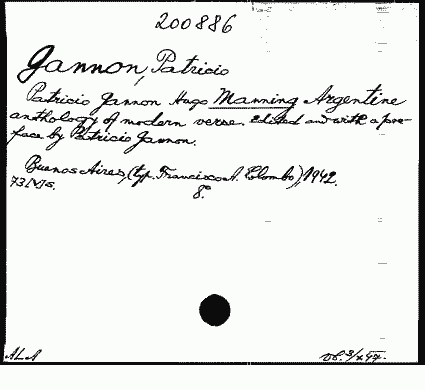 200886
Gannon, Patricio
Patricio Gannon Hugo Manning Argentine
anthology of modern verse. Edited and with a pre-
face by Patricio Gannon.
Buenos Aires, (typ. Francisco A. Colombo), 1942.
73 [V] s. 8°
ALA